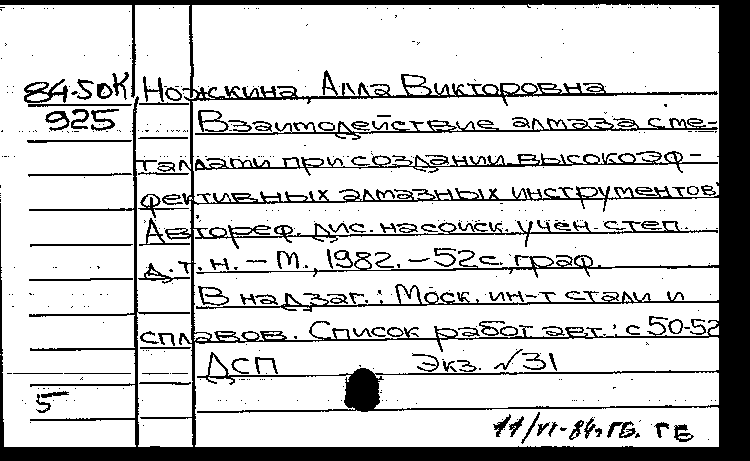 84-50К Ножкина, Алла Викторовна
925 Взаимодействие алмаза с ме-
таллами при создании высокоэф-
фективных алмазных инструментов
Автореф. дис. на соиск. учен. степ.
д.т.н. – М., 1982. – 52 с., граф.
В надзаг.: Моск. ин-т стали и
сплавов. Список работ авт.: с 50-52
ДСП Экз. №31
5
11/VI-84г ГБ. ГБ